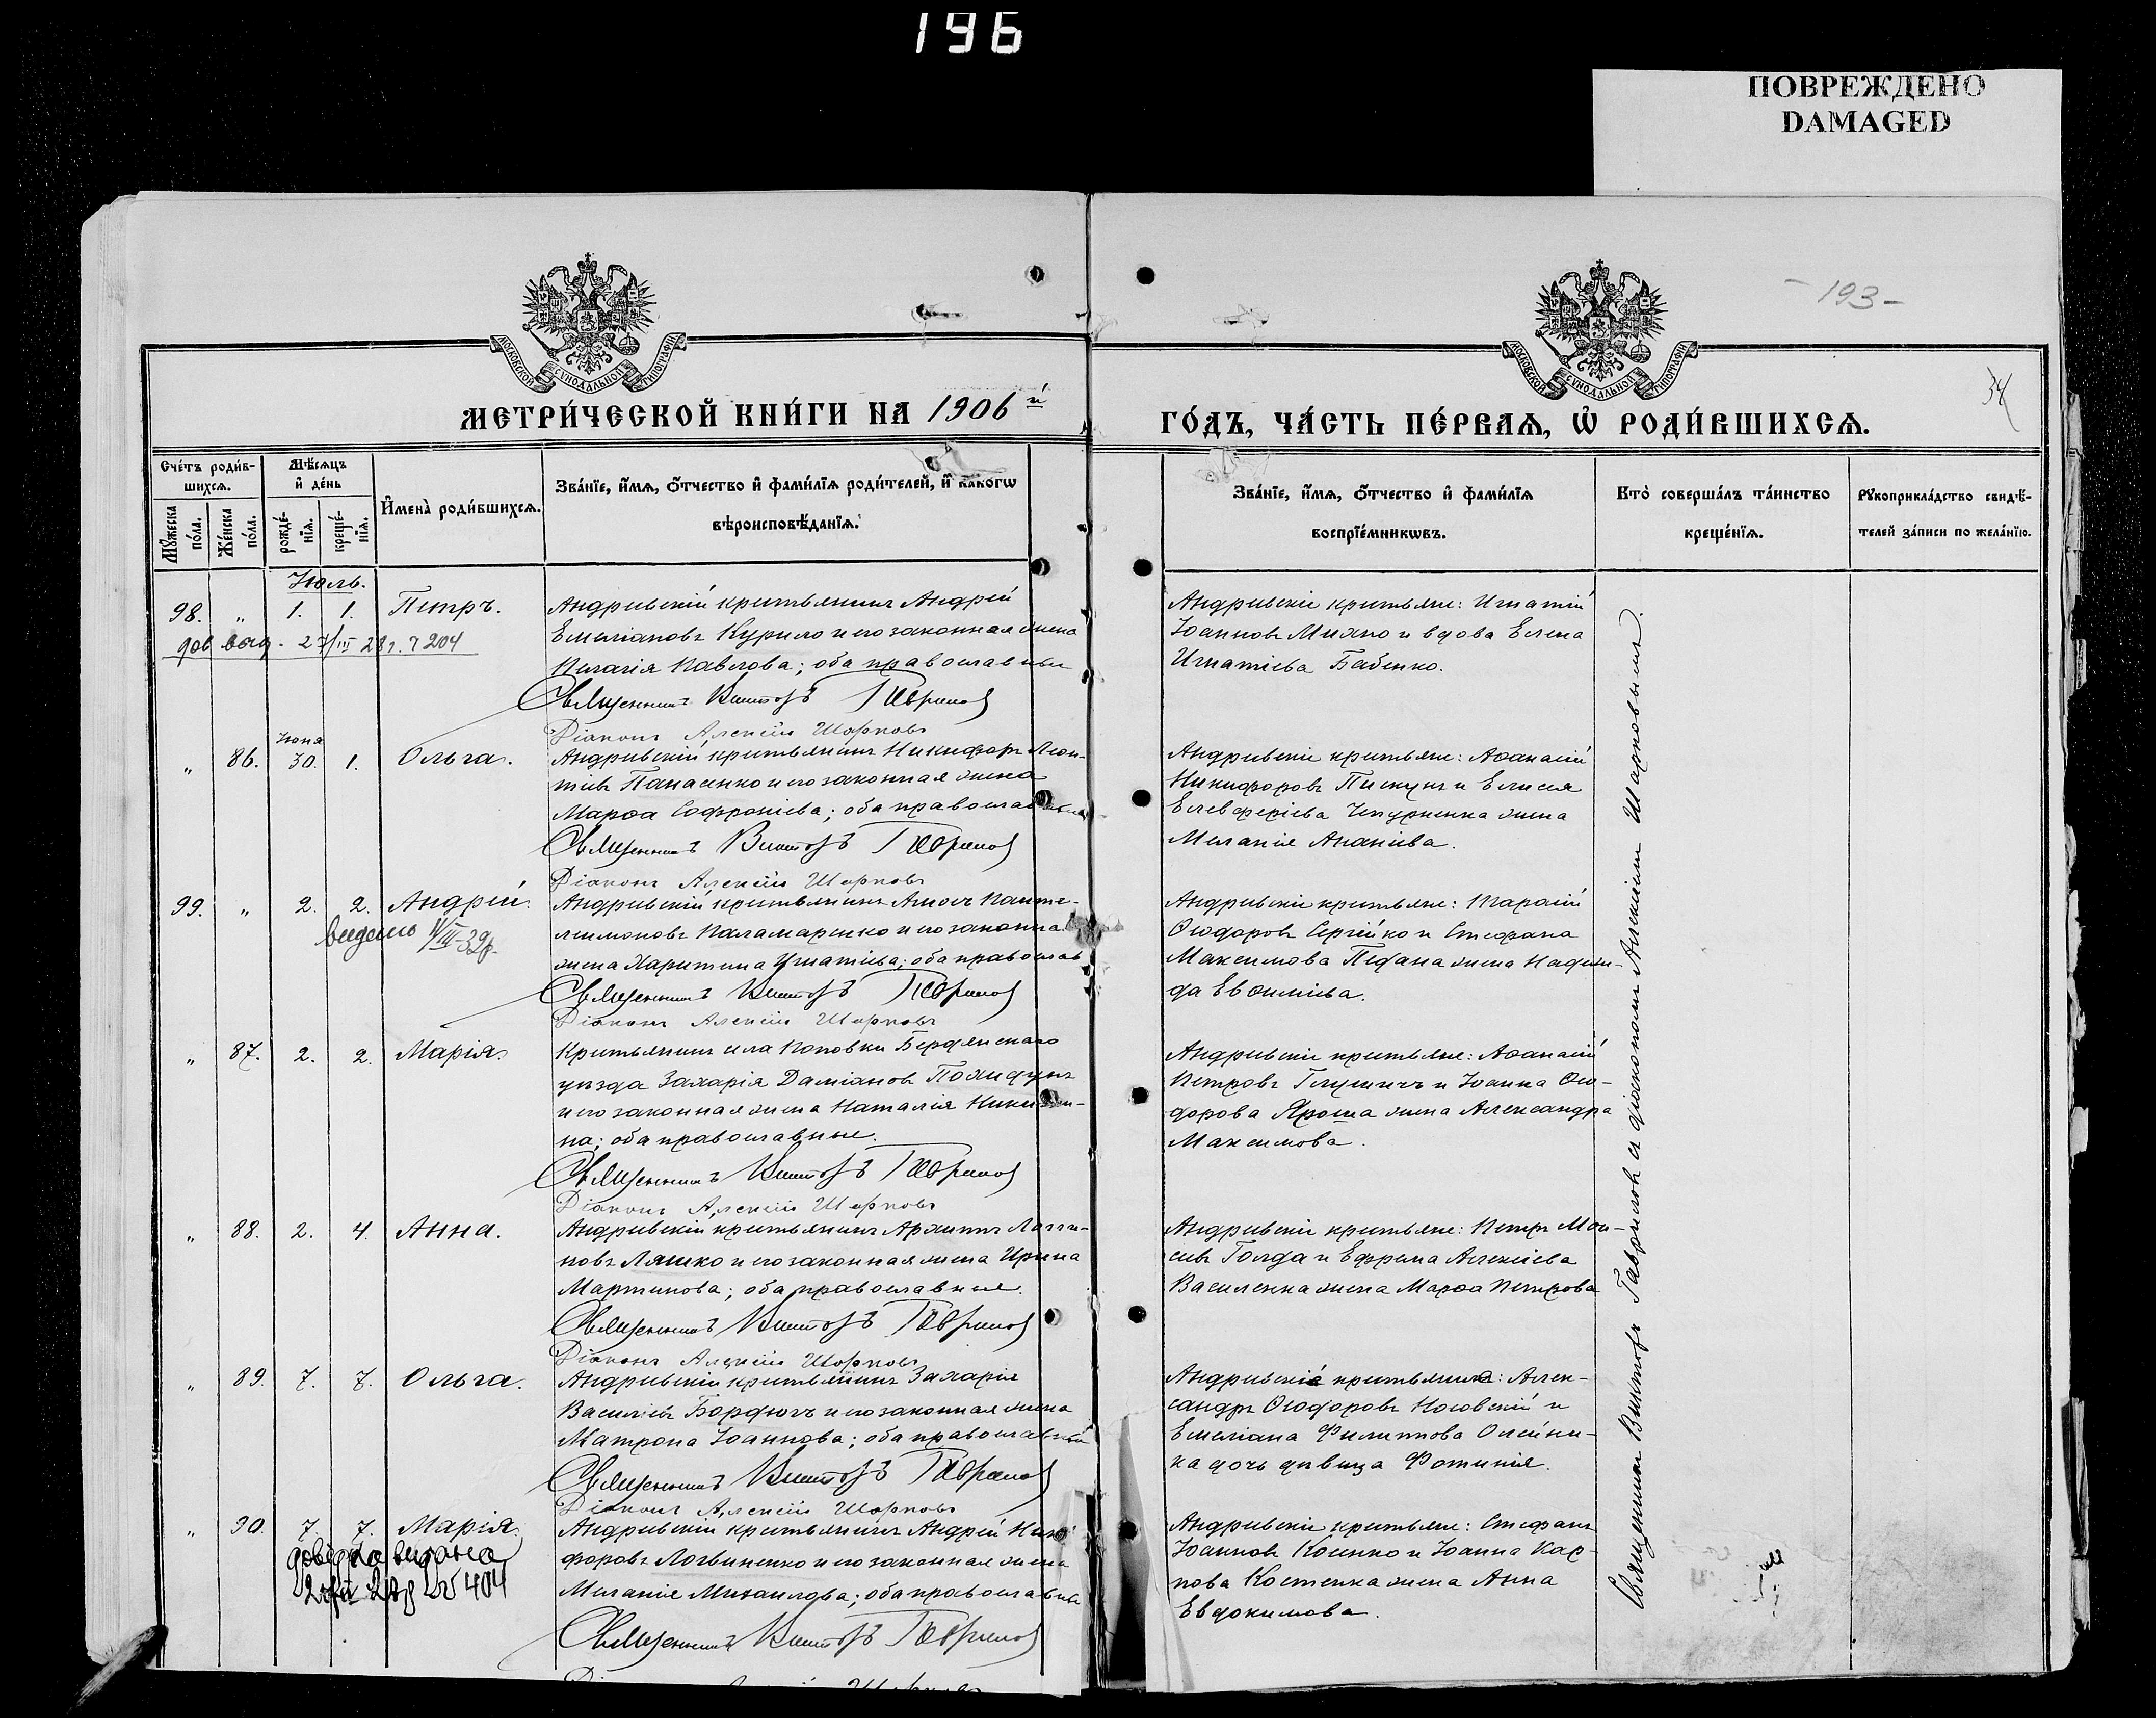 196
ПОВРЕЖДЕНО
DAMAGED
- 193 -
34
МОСКОВСКОЙ СѴНОДАЛЬНОЙ ТИПОГРАФІИ
МОСКОВСКОЙ СѴНОДАЛЬНОЙ ТИПОГРАФІИ
МЕТРИ́ЧЕСКОЙ КНИ́ГИ НА 1906 й
ГО́ДЪ, ЧА́СТЬ ПЕ́РВАѦ, Ѡ РОДИ́ВШИХСѦ.
Сче́тъ роди́в-
шихсѧ.
Мꙋ́жеска по́ла.
Же́нска по́ла.
Мѣ́сѧцъ
и де́нь
рожде́-
нїѧ.
креще́-
нїѧ.
Имена̀ роди́вшихсѧ.
Зва́нїе, и́мѧ, ѻ́тчество и фами́лїѧ роди́телей, и како́гѡ
вѣроисповѣ́данїѧ.
Зва́нїе, и́мѧ, ѻ́тчество и фами́лїѧ
воспрїе́мникѡвъ.
Кто̀ соверша́лъ та́инство
креще́нїѧ.
Рꙋкоприкла́дство свидѣ́-
телей за́писи по жела́нїю.
Іюль.
98. „ 1. 1. Петръ.
Андреевскій крестьянинъ Андрей
Емеліановъ Курило и его законная жена
Пелагія Павлова; оба православные
Священникъ Викторъ Гавриловъ
Діаконъ Алексій Шарковъ
Андреевскіе крестьяне: Игнатій
Іоанновъ Михно и вдова Елена
Игнатіева Бабенко.
„ 86. Іюня 30. 1. Ольга.
Андреевскій крестьянинъ Никифоръ Леон-
тіевъ Панасенко и его законная жена
Марѳа Софроніева; оба православные
Священникъ Викторъ Гавриловъ
Діаконъ Алексій Шарковъ
Андреевскіе крестьяне: Аѳанасій
Никифоровъ Пискунъ и Елисея
Елевферіева Чепурненка жена
Меланія Ананіева.
99. „ 2. 2. Андрей.
Андреевскій крестьянинъ Амосъ Панте-
леимоновъ Паламаренко и его законная
жена Харитина Игнатіева; оба православ
Священникъ Викторъ Гавриловъ
Діаконъ Алексій Шарковъ
Андреевскіе крестьяне: Тарасій
Ѳеодоровъ Сергейко и Стефана
Максимова Педана жена Надеж-
да Евѳиміева.
„ 87. 2. 2. Марія.
Крестьянинъ села Поповки Бердянскаго
уѣзда Захарія Даміановъ Полидунъ
и его законная жена Наталія Ники-
на; оба православные.
Священникъ Викторъ Гавриловъ
Діаконъ Алексій Шарковъ
Андреевскіе крестьяне: Аѳанасій
Петровъ Глушичъ и Іоанна Ѳео-
дорова Яроша жена Александра
Максимова.
„ 88. 2. 4. Анна.
Андреевскій крестьянинъ Архипъ Логги-
новъ Ляшко и его законная жена Ирина
Мартинова; оба православные.
Священникъ Викторъ Гавриловъ
Діаконъ Алексій Шарковъ
Андреевскіе крестьяне: Петръ Мои-
сеевъ Голда и Ефрема Алексіева
Василенка жена Марѳа Петрова
„ 89. 7. 7. Ольга.
Андреевскій крестьянинъ Захарія
Василіевъ Бордюгъ и его законная жена
Матрона Іоаннова; оба православные
Священникъ Викторъ Гавриловъ
Діаконъ Алексій Шарковъ
Андреевскіе крестьяне: Алек-
сандръ Ѳеодоровъ Носовскій и
Емеліана Филиппова Олейни-
ка дочь дѣвица Фотинія.
„ 90. 7. 7. Марія.
довідка видана
Андреевскій крестьянинъ Андрей Ники-
форовъ Логвиненко и его законная жена
Меланія Михаилова; оба православные
Священникъ Викторъ Гавриловъ
Андреевскіе крестьяне: Стефанъ
Іоанновъ Косенко и Іоанна Кар-
пова Костенка жена Анна
Евдокимова.
Священникъ Викторъ Гавриловъ съ діакономъ Алексіемъ Шарковымъ.